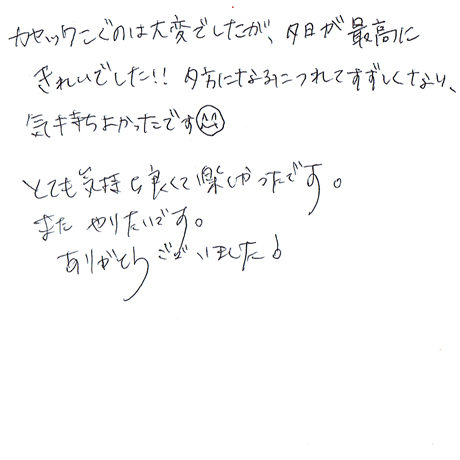 カヤックこぐのは大変でしたが、夕日が最高に
きれいでした!! 夕方になるにつれてすずしくなり、
気持ちよかったです
とても気持ち良くて楽しかったです。
また やりたいです。
ありがとうございました♪